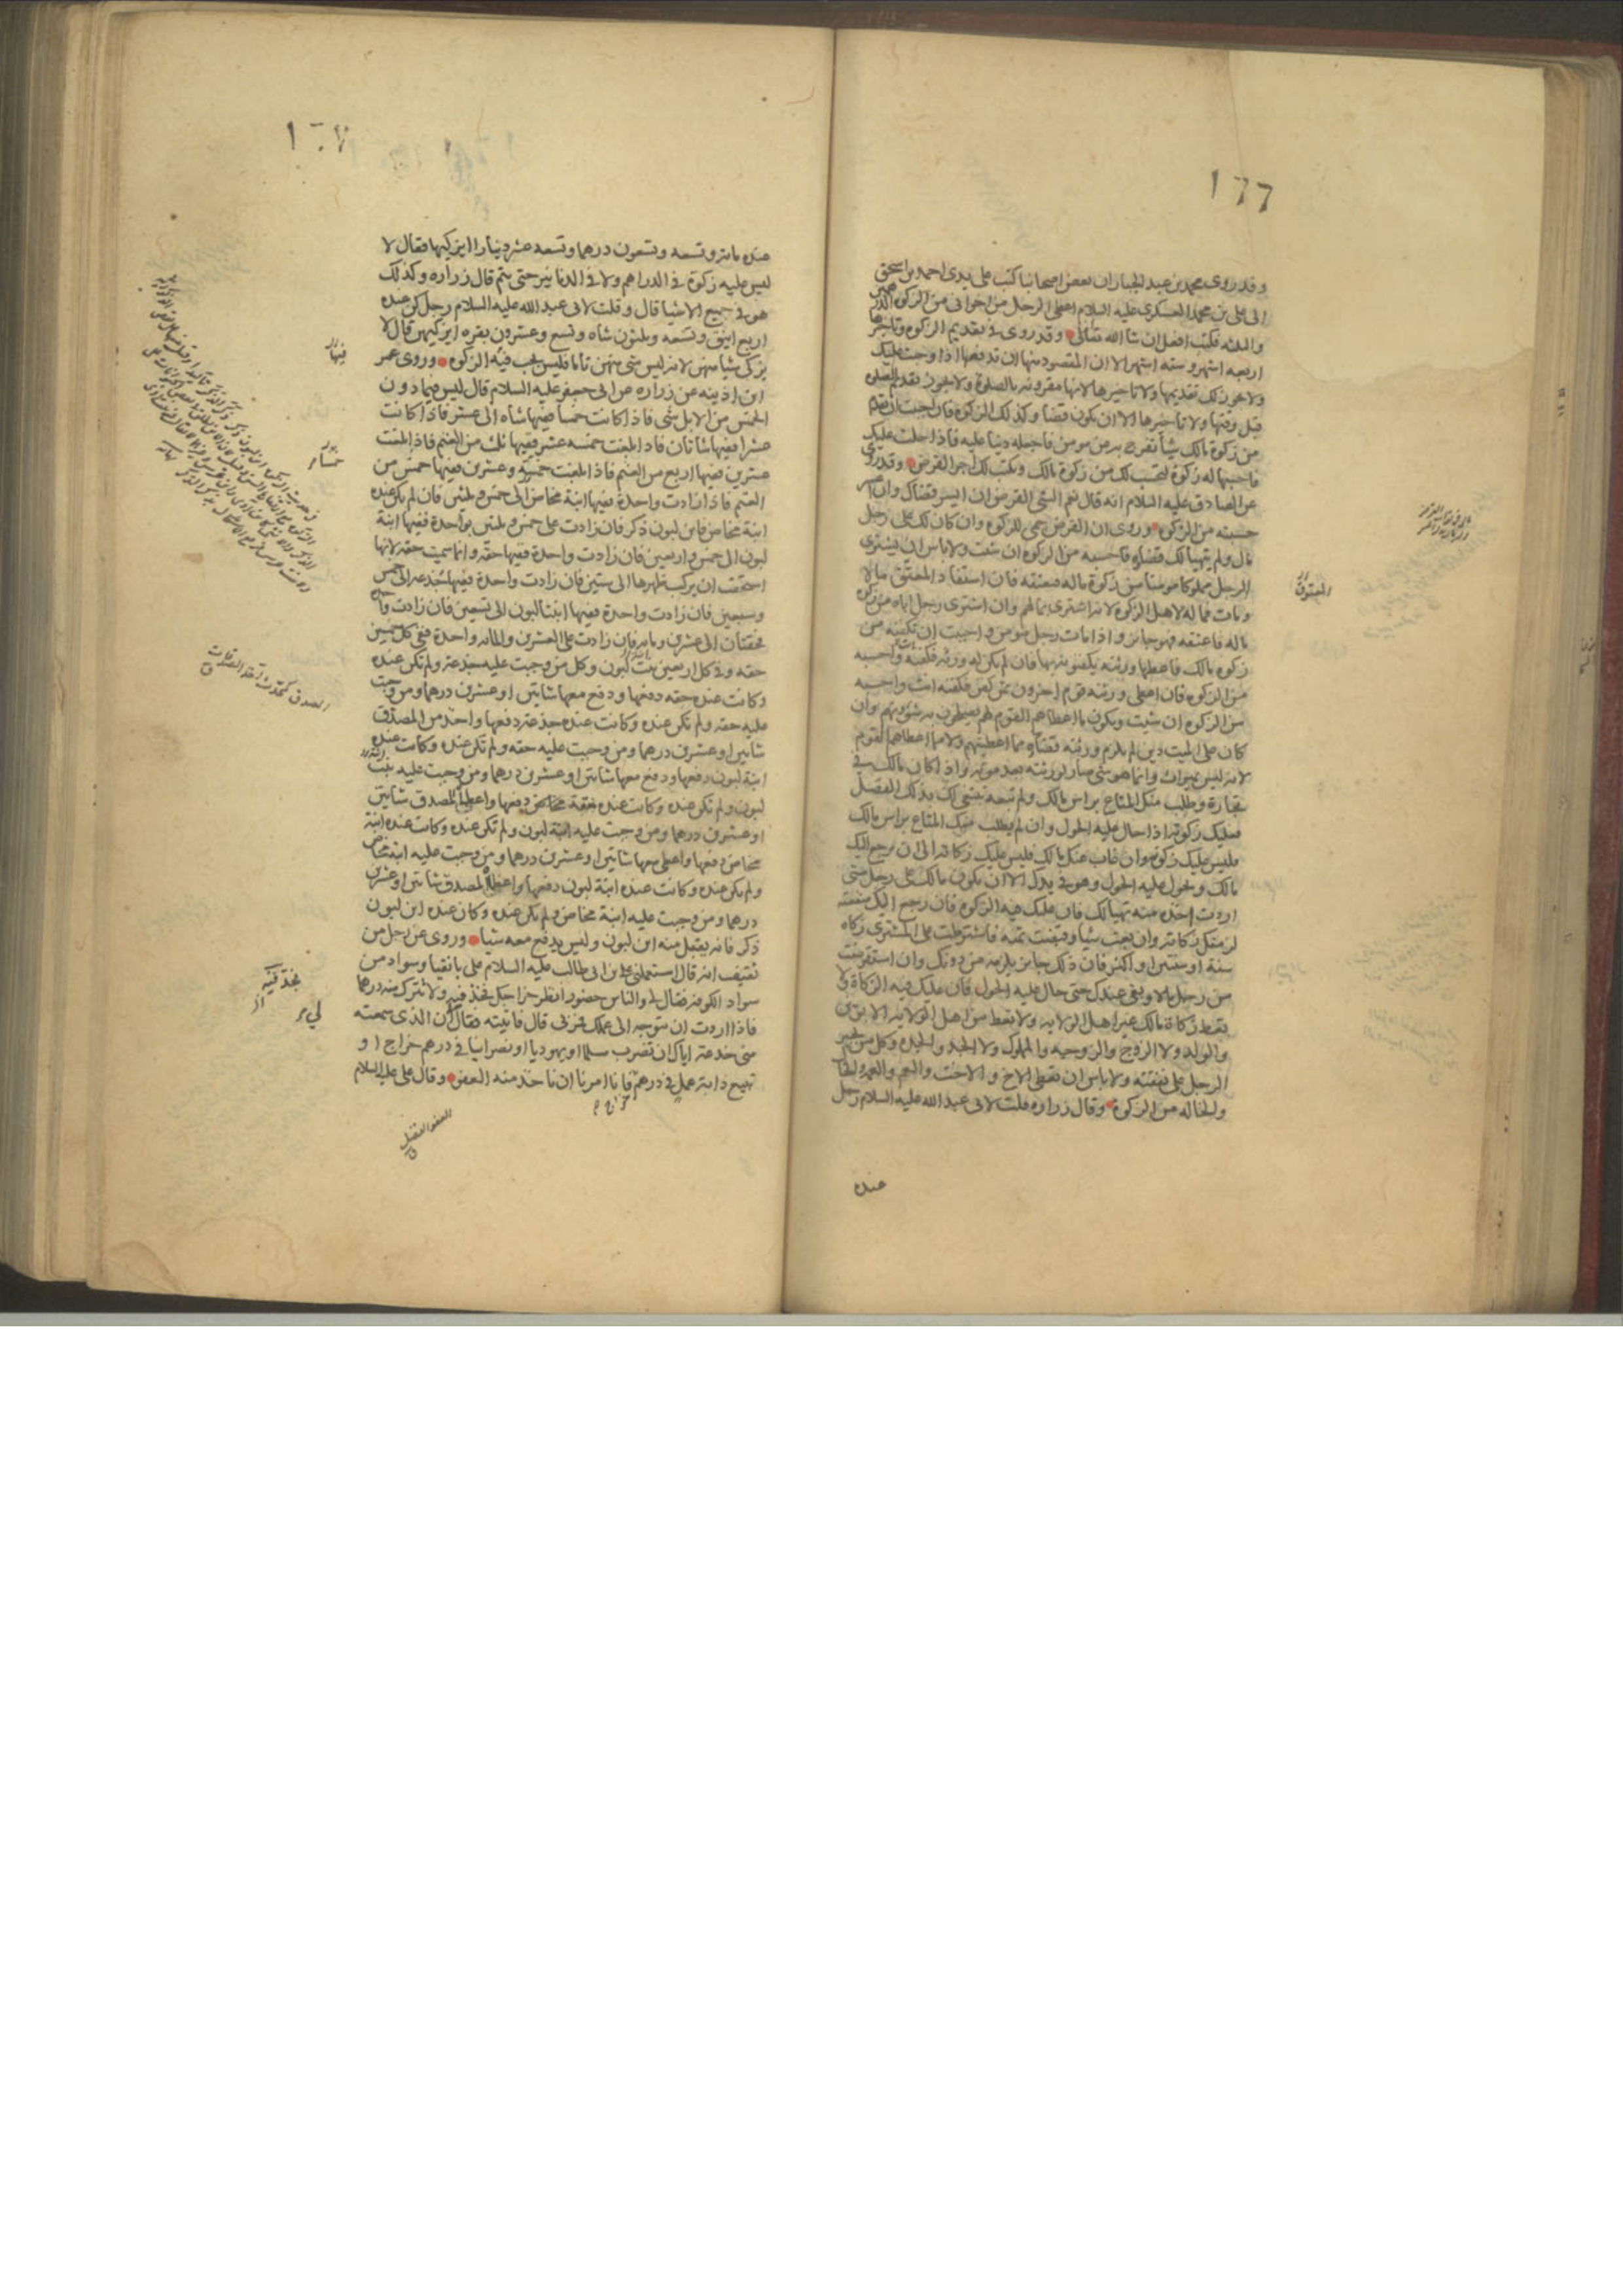 ١٦٦
وقد روى محمد بن عبد الجبار ان بعض اصحابنا كتب على يدى احمد بن اسحق
الى على بن محمد العسكرى عليه السلام اعطى الرجل من اخوانى من الزكوة الدرهمين
والثلثه فكتب افعل ان شا الله تعالى وقد روى فى تقديم الزكوه وتاخيرها
اربعه اشهر وسته اشهر الا ان المقصود منها ان تدفعها اذا وجبت عليك
ولا يجوز لك تقديمها ولا تاخيرها لانها مقرونه بالصلوة ولا يجوز تقديم الصلوه
قبل وقتها ولا تاخيرها الا ان يكون قضا وكذلك الزكوه فان احببت ان تقدم
من زكوة مالك شيأ تفرج به عن مومن فاجعله دينا عليه فاذا حلت عليك
فاحسبها له زكوة ليحسب لك من زكوة مالك ويكتب لك اجر القرض وقد روى
عن الصادق عليه السلام انه قال نعم الشى القرض ان ايسر قضاك وان اعسر
حسبته من الزكوه وروى ان القرض حمى للزكوه وان كان لك على رجل
مال ولم يتهيا لك قضاوه فاحسبه من الزكوه ان شئت ولا باس ان يشترى
الرجل مملوكا مومنا من زكوة ماله فيعتقه فان استفاد المعتق مالا
ومات فماله لاهل الزكوه لانه اشترى بمالهم وان اشترى رجل اباه من زكوة
ماله فاعتقه فهو جائز واذا مات رجل مومن واحببت ان تكفنه من
زكوه مالك فاعطها ورثته يكفنونه بها فان لم يكن له ورثه فكفنه واحسبه
من الزكوه فان اعطى ورثته قوم اخرون ثمن كفن فكفنه انت واحسبه
من الزكوه ان شيت ويكون ما اعطاهم القوم لهم يصلحون به شؤونهم وان
كان على الميت دين لم يلزم ورثته قضاؤه مما اعطيتهم ولا مما اعطاهم القوم
لانه ليس بميراث وانما هو شى صار لورثته بعد موته واذا كان مالك فى
تجارة وطلب منك المتاع براس مالك ولم تبعه تبتغى لك بذلك الفضل
فعليك زكوته اذا حال عليه الحول وان لم يطلب منك المتاع براس مالك
فليس عليك زكوته وان غاب عنك مالك فليس عليك زكاته الى ان يرجع اليك
مالك ويحول عليه الحول وهو فى يدك الا ان يكون مالك على رجل متى
اردت اخذه منه تهيا لك فان عليك فيه الزكوه فان رجع اليك منفعته
لزمتك زكاته وان بعت شيا وقبضت ثمنه فاشترطت على المشترى زكاه
سنة او سنتين او اكثر فان ذلك جايز يلزمه من دونك وان استقرضت
من رجل مالا وبقى عندك حتى حال عليه الحول فان عليك فيه الزكاة ولا
تعط زكاة مالك غير اهل الولايه ولا تعط من اهل الولايه الابوين
والولد ولا الزوج والزوجه والمملوك ولا الجد والجده وكل من يجبر
الرجل على نفقته ولا باس ان تعطى الاخ والاخت والعم والعمه والخال
والخاله من الزكوة وقال زراره قلت لابى عبد الله عليه السلام رجل
عنده
عنده مائه وتسعه وتسعون درهما وتسعه عشر دينارا ايزكيها فقال لا
ليس عليه زكوة فى الدراهم ولا فى الدنانير حتى يتم قال زراره وكذلك
هو فى جميع الاشيا قال وقلت لابى عبد الله عليه السلام رجل كن عنده
اربع اينق وتسعه وثلثون شاه وتسع وعشرون بقره ايزكيهن قال لا
يزكى شيا منهن لانه ليس شى منهن تاما فليس تجب فيه الزكوه وروى عمر
ابن اذينه عن زراره عن ابى جعفر عليه السلام قال ليس فيما دون
الخمس من الابل شى فاذا كانت خمسا ففيها شاه الى عشر فاذا كانت
عشرا ففيها شاتان فاذا بلغت خمسه عشر ففيها ثلث من الغنم فاذا بلغت
عشرين ففيها اربع من الغنم فاذا بلغت خمسة وعشرين ففيها خمس من
الغنم فاذا زادت واحدة ففيها ابنة مخاض الى خمس وثلثين فان لم يكن عنده
ابنة مخاض فابن لبون ذكر فان زادت على خمس وثلثين بواحدة ففيها ابنة
لبون الى خمس واربعين فان زادت واحدة ففيها حقه وانما سميت حقه لانها
استحقت ان يركب ظهرها الى ستين فان زادت واحدة ففيها جذعه الى خمس
وسبعين فان زادت واحدة ففيها ابنتا لبون الى تسعين فان زادت واحدة
فحقتان الى عشرين ومايه فان زادت على العشرين والمائه واحدة ففى كل خمسين
حقه وفى كل اربعين بنت لبون وكل من وجبت عليه جذعة ولم تكن عنده
وكانت عنده حقه دفعها ودفع معها شاتين او عشرين درهما ومن وجبت
عليه حقه ولم تكن عنده وكانت عنده جذعة دفعها واخذ من المصدق
شاتين او عشرين درهما ومن وجبت عليه حقه ولم تكن عنده وكانت عنده
ابنة لبون دفعها ودفع معها شاتين او عشرين درهما ومن وجبت عليه بنت
لبون ولم تكن عنده وكانت عنده حقة دفعها واعطاه المصدق شاتين
او عشرين درهما ومن وجبت عليه ابنة لبون ولم تكن عنده وكانت عنده ابنة
مخاض دفعها واعطى معها شاتين او عشرين درهما ومن وجبت عليه ابنة مخاض
ولم تكن عنده وكانت عنده ابنة لبون دفعها واعطاه المصدق شاتين او عشرين
درهما ومن وجبت عليه ابنة مخاض ولم تكن عنده وكان عنده ابن لبون
ذكر فانه يقبل منه ابن لبون وليس يدفع معه شيا وروى عن رجل من
ثقيف انه قال استعملنى على بن ابى طالب عليه السلام على بانقيا وسواد من
سواد الكوفه فقال لى والناس حضور انظر خراجك فخذ فيه ولا تترك منه درهما
فاذا اردت ان تتوجه الى عملك فمر بى قال فاتيته فقال ان الذى سمعته
منى خدعة اياك ان تضرب مسلما او يهوديا او نصرانيا فى درهم خراج او
تبيع دابة عمل فى درهم فانا امرنا ان ناخذ منه العفو وقال على عليه السلام